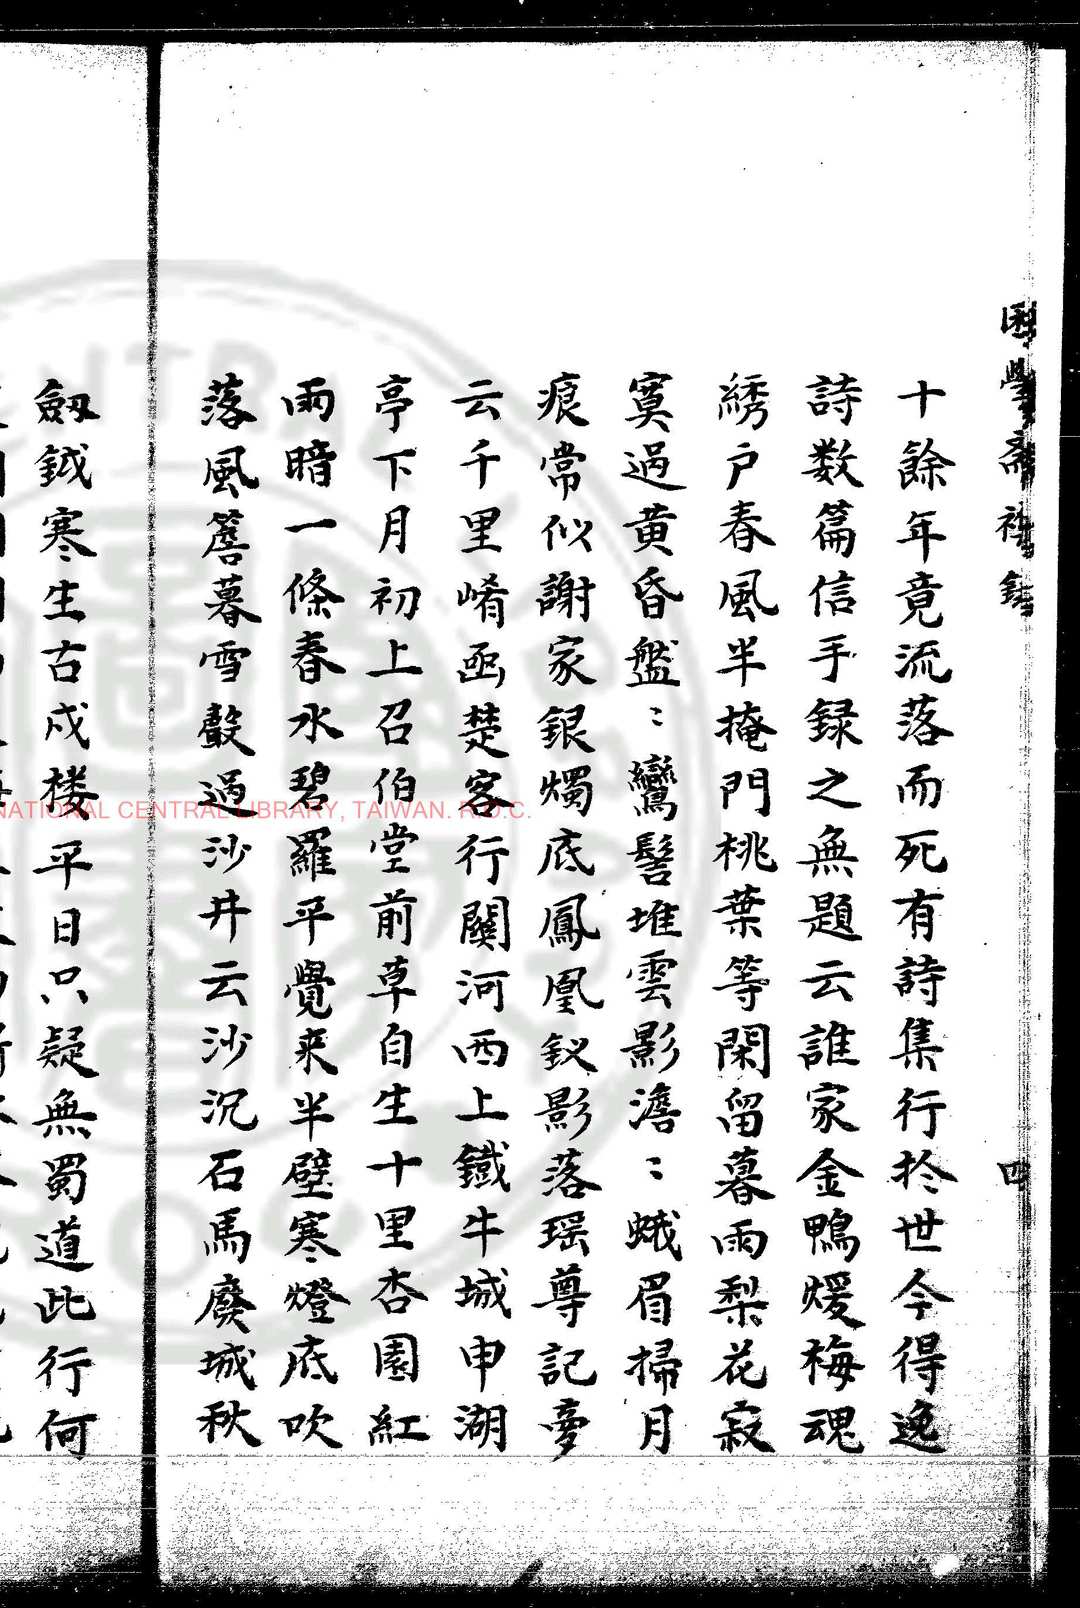 困學齋襍錄
四
十餘年竟流落而死有詩集行於世今得逸
詩数篇信手録之無題云誰家金鴨煖梅魂
綉户春風半掩門桃葉等閑留暮雨梨花寂
寞過黄昏盤〻鸞髻堆雲影澹〻蛾眉掃月
痕常似謝家銀燭底鳳凰釵影落瑶尊記夢
云千里崤函楚客行闗河西上鐵牛城申湖
亭下月初上召伯堂前草自生十里杏園紅
雨暗一條春水碧羅平覺来半壁寒燈底吹
落風簷暮雪聲過沙井云沙沉石馬廢城秋
劔鉞寒生古戍楼平日只疑無蜀道此行何
NATIONAL CENTRAL LIBRARY, TAIWAN. R.O.C.